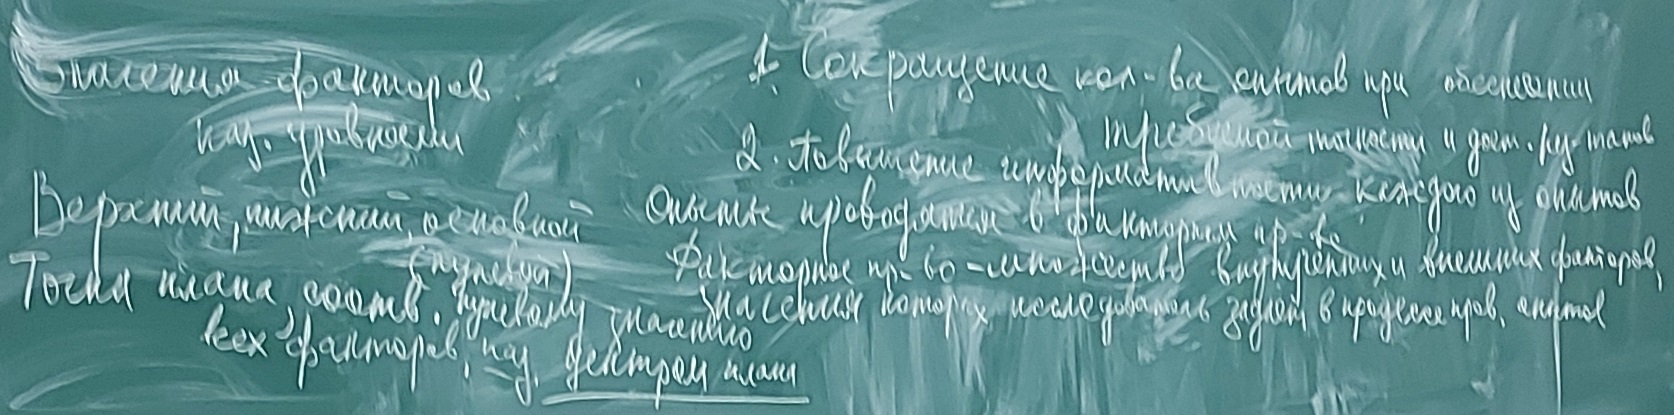 Значения факторов
наз. уровнями
Верхний, нижний, основной
(нулевой)
Точка плана, соотв. нулевому значению
всех факторов, наз. центром плана
1. Сокращение кол-ва опытов при обеспечении
требуемой точности и дост. рез-татов
2. Повышение информативности каждого из опытов
Опыты проводятся в факторном пр-ве
Факторное пр-во - множество внутренних и внешних факторов,
значения которых исследователь задаёт в процессе пров. опытов